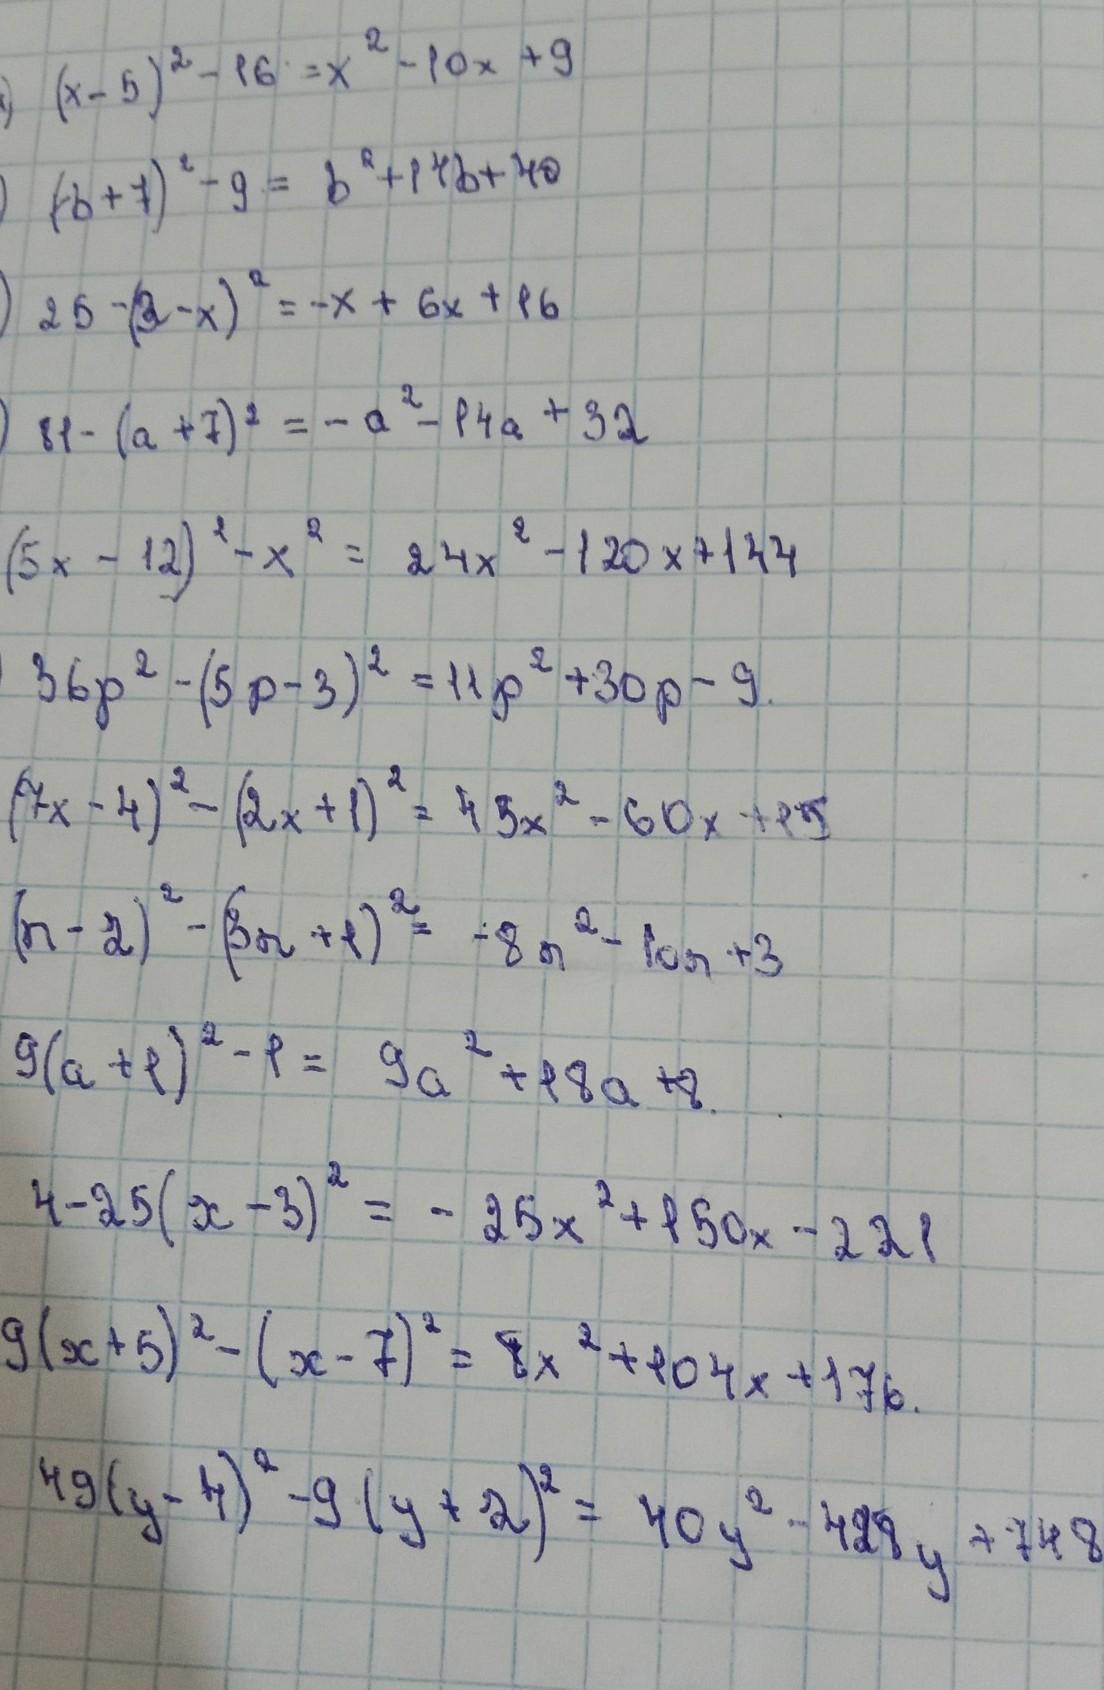 ) (x-5)² - 16 = x² - 10x + 9
) (b+7)² - 9 = b² + 14b + 40
) 25 - (3-x)² = -x + 6x + 16
) 81 - (a+7)² = -a² - 14a + 32
(5x - 12)² - x² = 24x² - 120x + 144
) 36p² - (5p-3)² = 11p² + 30p - 9.
(7x - 4)² - (2x+1)² = 45x² - 60x + 15
(n - 2)² - (3n + 1)² = -8n² - 10n + 3
9(a+1)² - 1 = 9a² + 18a + 8.
4 - 25(x - 3)² = -25x² + 150x - 221
9(x+5)² - (x-7)² = 8x² + 104x + 176.
49(y - 4)² - 9(y+2)² = 40y² - 428y + 748